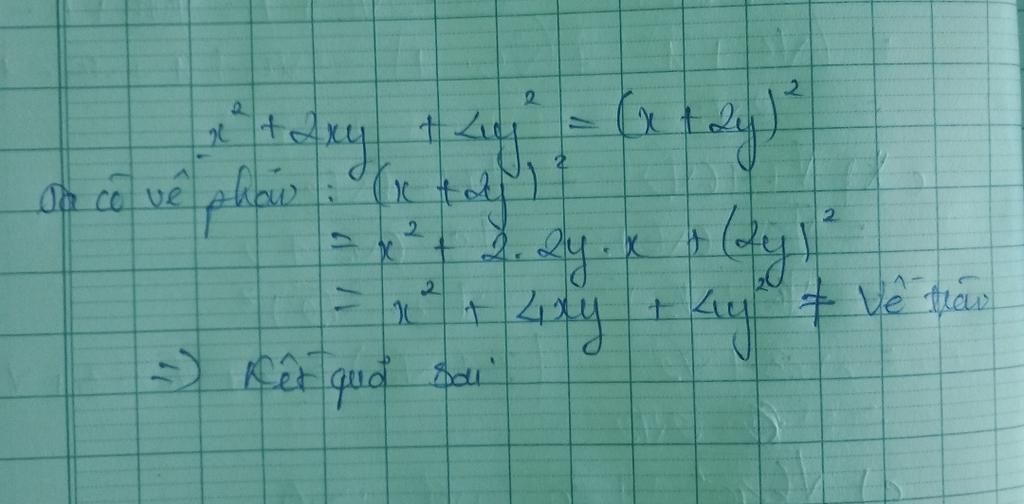 x² + 2xy + 4y² = (x + 2y)²
Ta có vế phải : (x + 2y)²
= x² + 2. 2y. x + (2y)²
= x² + 4xy + 4y² ≠ Vế trái
=> Kết quả sai